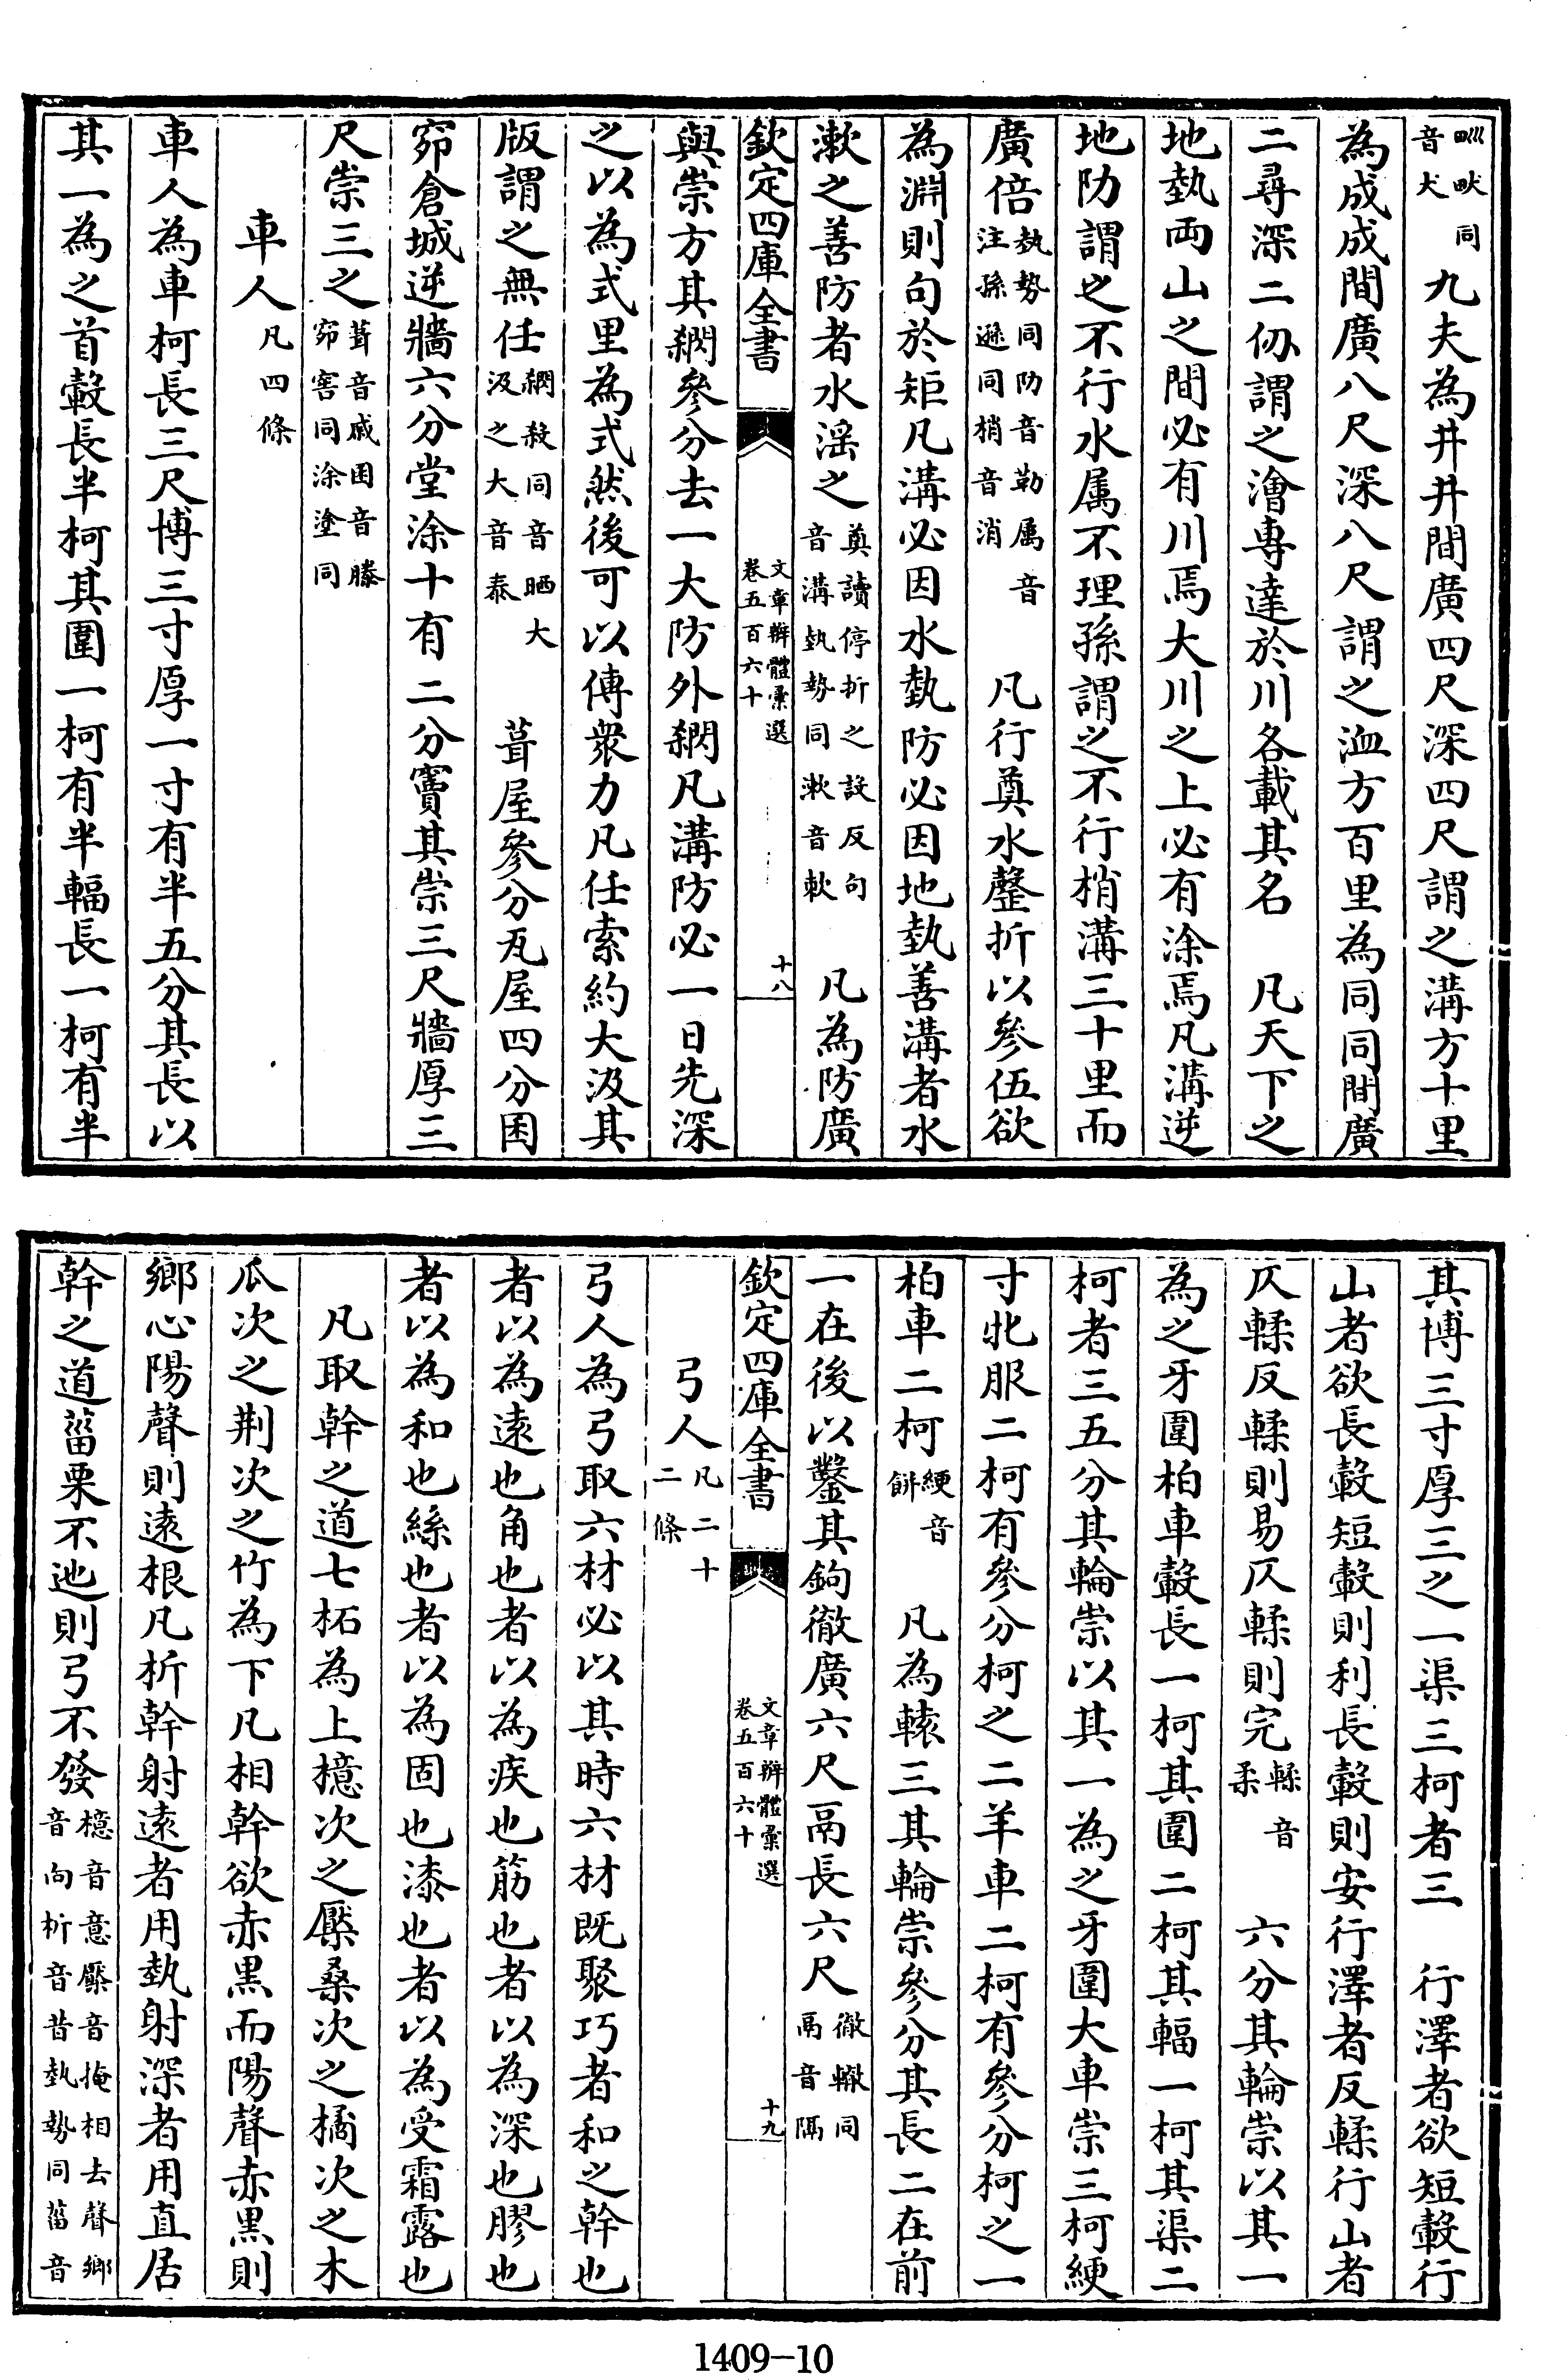 𤰕畎同音犬　九夫為井井間廣四尺深四尺謂之溝方十里
為成成間廣八尺深八尺謂之洫方百里為同同間廣
二尋深二仞謂之澮專達於川各載其名　凡天下之
地埶両山之間必有川焉大川之上必有涂焉凡溝逆
地防謂之不行水属不理孫謂之不行梢溝三十里而
廣倍埶勢同防音勒属音注孫遜同梢音消　凡行奠水磬折以參伍欲
為淵則句於矩凡溝必因水埶防必因地埶善溝者水
漱之善防者水淫之奠讀停折之設反句音溝埶勢同漱音欶　凡為防廣
欽定四庫全書　文章辨體彚選卷五百六十　十八
與崇方其䊛參分去一大防外䊛凡溝防必一日先深
之以為式里為式然後可以傅衆力凡任索約大汲其
版謂之無任䊛殺同音晒大汲之大音泰　葺屋參分瓦屋四分囷
窌倉城逆牆六分堂涂十有二分竇其崇三尺牆厚三
尺崇三之葺音戚囷音䐜窌窖同涂塗同
車人凡四條
車人為車柯長三尺博三寸厚一寸有半五分其長以
其一為之首轂長半柯其圍一柯有半輻長一柯有半
其博三寸厚三之一渠三柯者三　行澤者欲短轂行
山者欲長轂短轂則利長轂則安行澤者反輮行山者
仄輮反輮則易仄輮則完輮音柔　六分其輪崇以其一
為之牙圍柏車轂長一柯其圍二柯其輻一柯其渠二
柯者三五分其輪崇以其一為之牙圍大車崇三柯綆
寸牝服二柯有參分柯之二羊車二柯有參分柯之一
柏車二柯綆音餅　凡為轅三其輪崇參分其長二在前
一在後以鑿其鉤徹廣六尺鬲長六尺徹轍同鬲音隔
欽定四庫全書　文章辨體彚選卷五百六十　十九
弓人凡二十二條
弓人為弓取六材必以其時六材既聚巧者和之幹也
者以為遠也角也者以為疾也筋也者以為深也膠也
者以為和也絲也者以為固也漆也者以為受霜露也
凡取幹之道七柘為上檍次之檿桑次之橘次之木
瓜次之荆次之竹為下凡相幹欲赤黒而陽聲赤黒則
鄉心陽聲則遠根凡析幹射遠者用埶射深者用直居
幹之道菑栗不迆則弓不發檍音意檿音掩相去聲鄉音向析音昔埶勢同菑音
1409-10